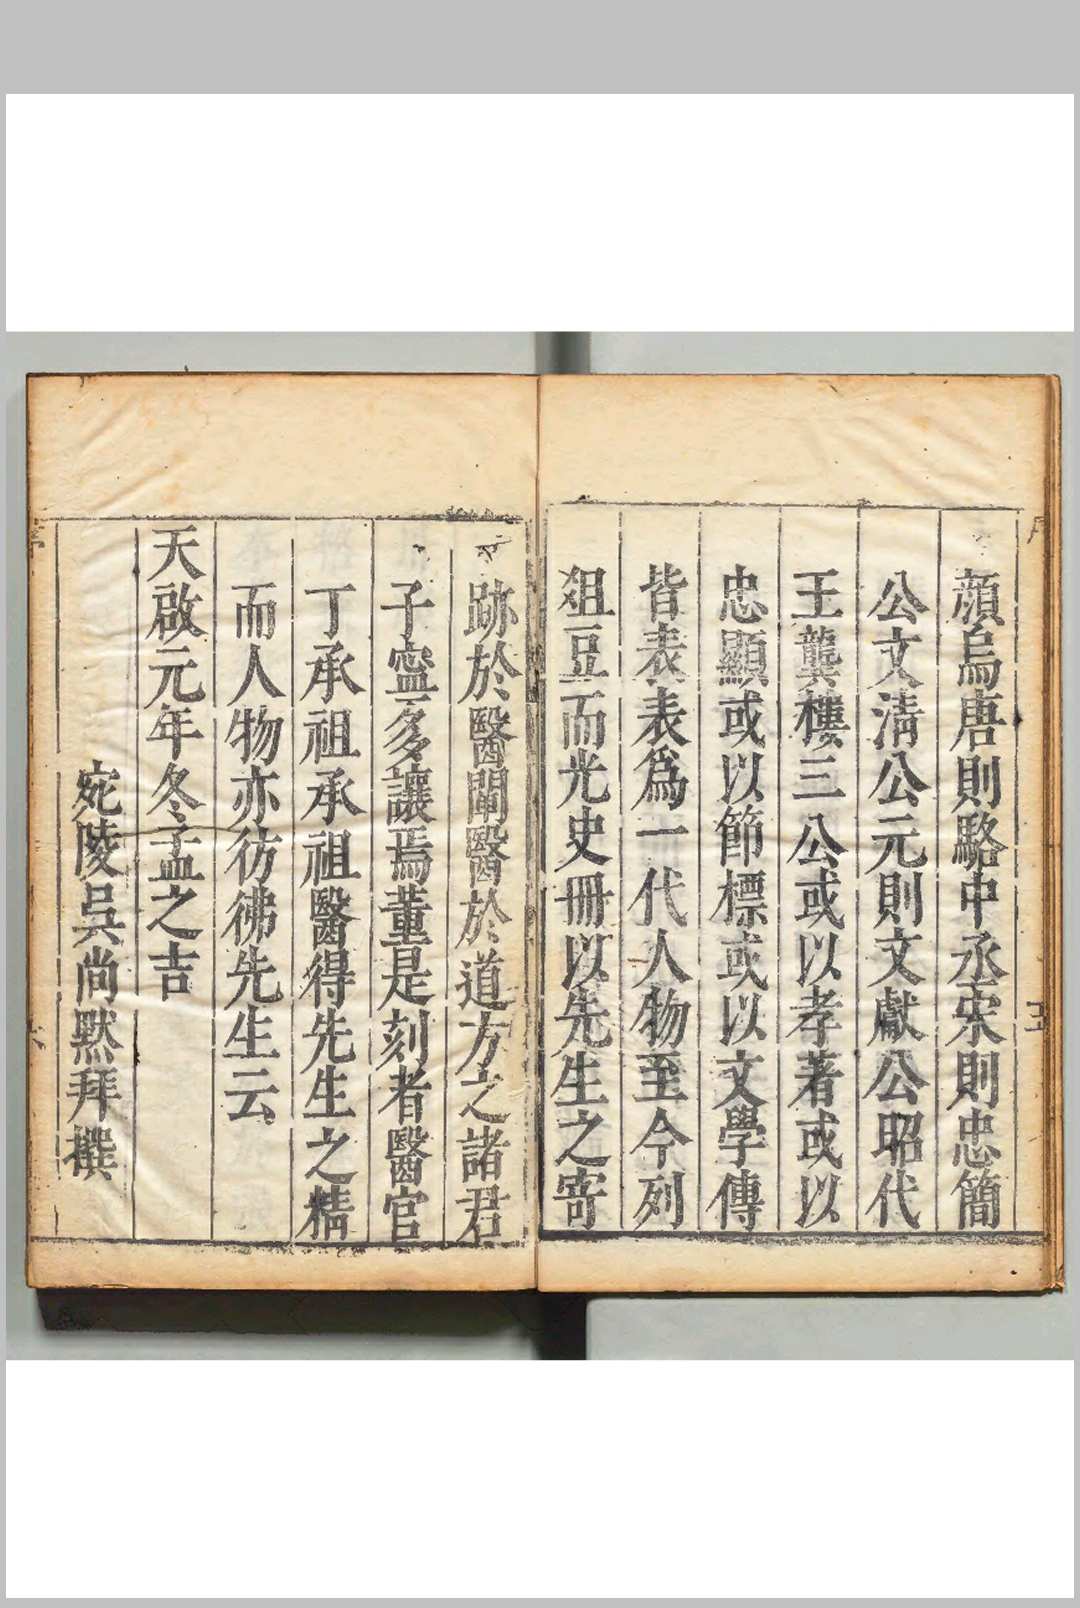 顔烏唐則駱中丞宋則忠簡
公文清公元則文獻公昭代
王龔樓三公或以孝著或以
忠顯或以節標或以文學傳
皆表表爲一代人物至今列
俎豆而光史冊以先生之寄
跡於醫闡醫於道方之諸君
子寧多讓焉董是刻者醫官
丁承祖承祖醫得先生之精
而人物亦彷彿先生云
天啟元年冬孟之吉
宛陵吳尚默拜撰